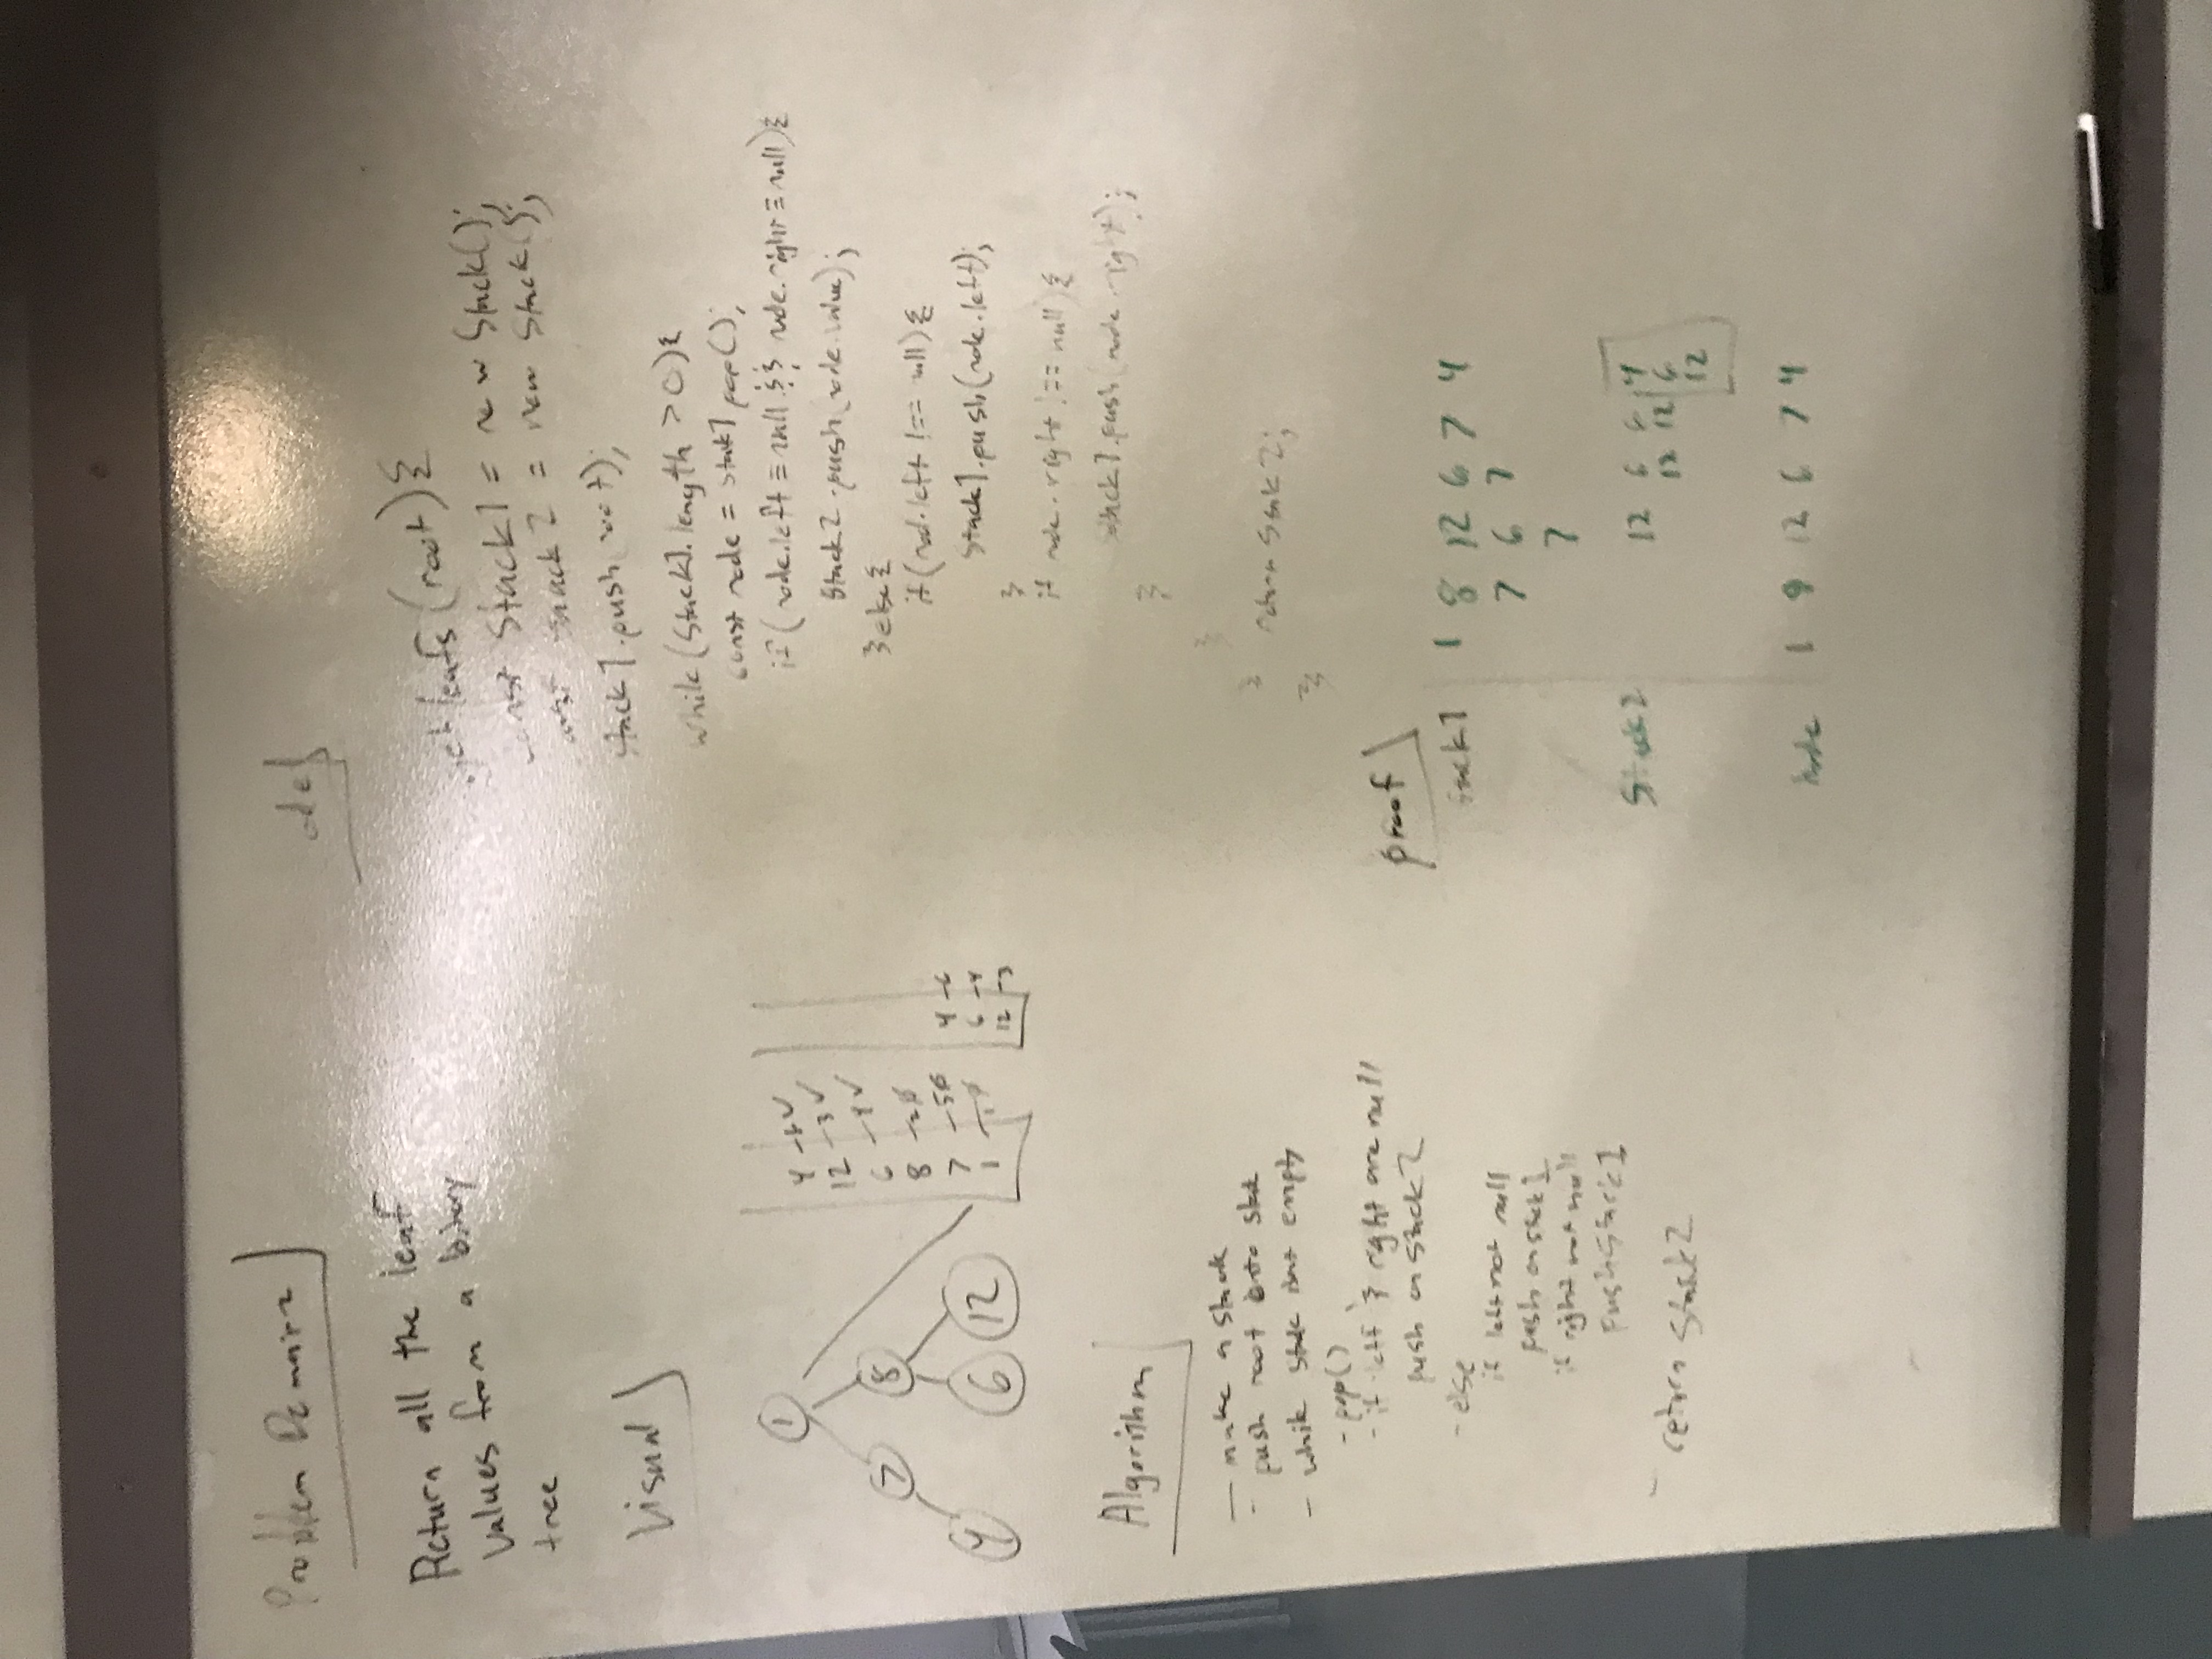 Problem Domain
Return all the leaf
values from a binary
tree
Visual
1
7 8
4 6 12
4 - 6 ✓
12 - 3 ✓
6 - 4 ✓
8 - 2 ø
7 - 5 ø
1 - 1 ø
4 - 6
6 - 4
12 - 3
Algorithm
- make a stack
- push root onto stack
- while stack isnt empty
- pop()
- if left & right are null
push on stack 2
- else
if left not null
push on stack 1
if right not null
push stack 1
- return stack 2
ode
get leafs (root) {
const Stack1 = new Stack();
const Stack2 = new Stack();
stack1.push(root);
while (Stack1.length > 0) {
const node = stack1.pop();
if (node.left ≡ null && node.right ≡ null) {
Stack2.push(node.value);
} else {
if (nod.left !== null) {
Stack1.push(node.left);
}
if node.right !== null) {
stack1.push(node.right);
}
}
} return Stack2;
}
proof
Stack1 1 8 12 6 7 4
7 6 7
7
Stack2 12 6 6 4
12 12 6
12
Node 1 8 12 6 7 4